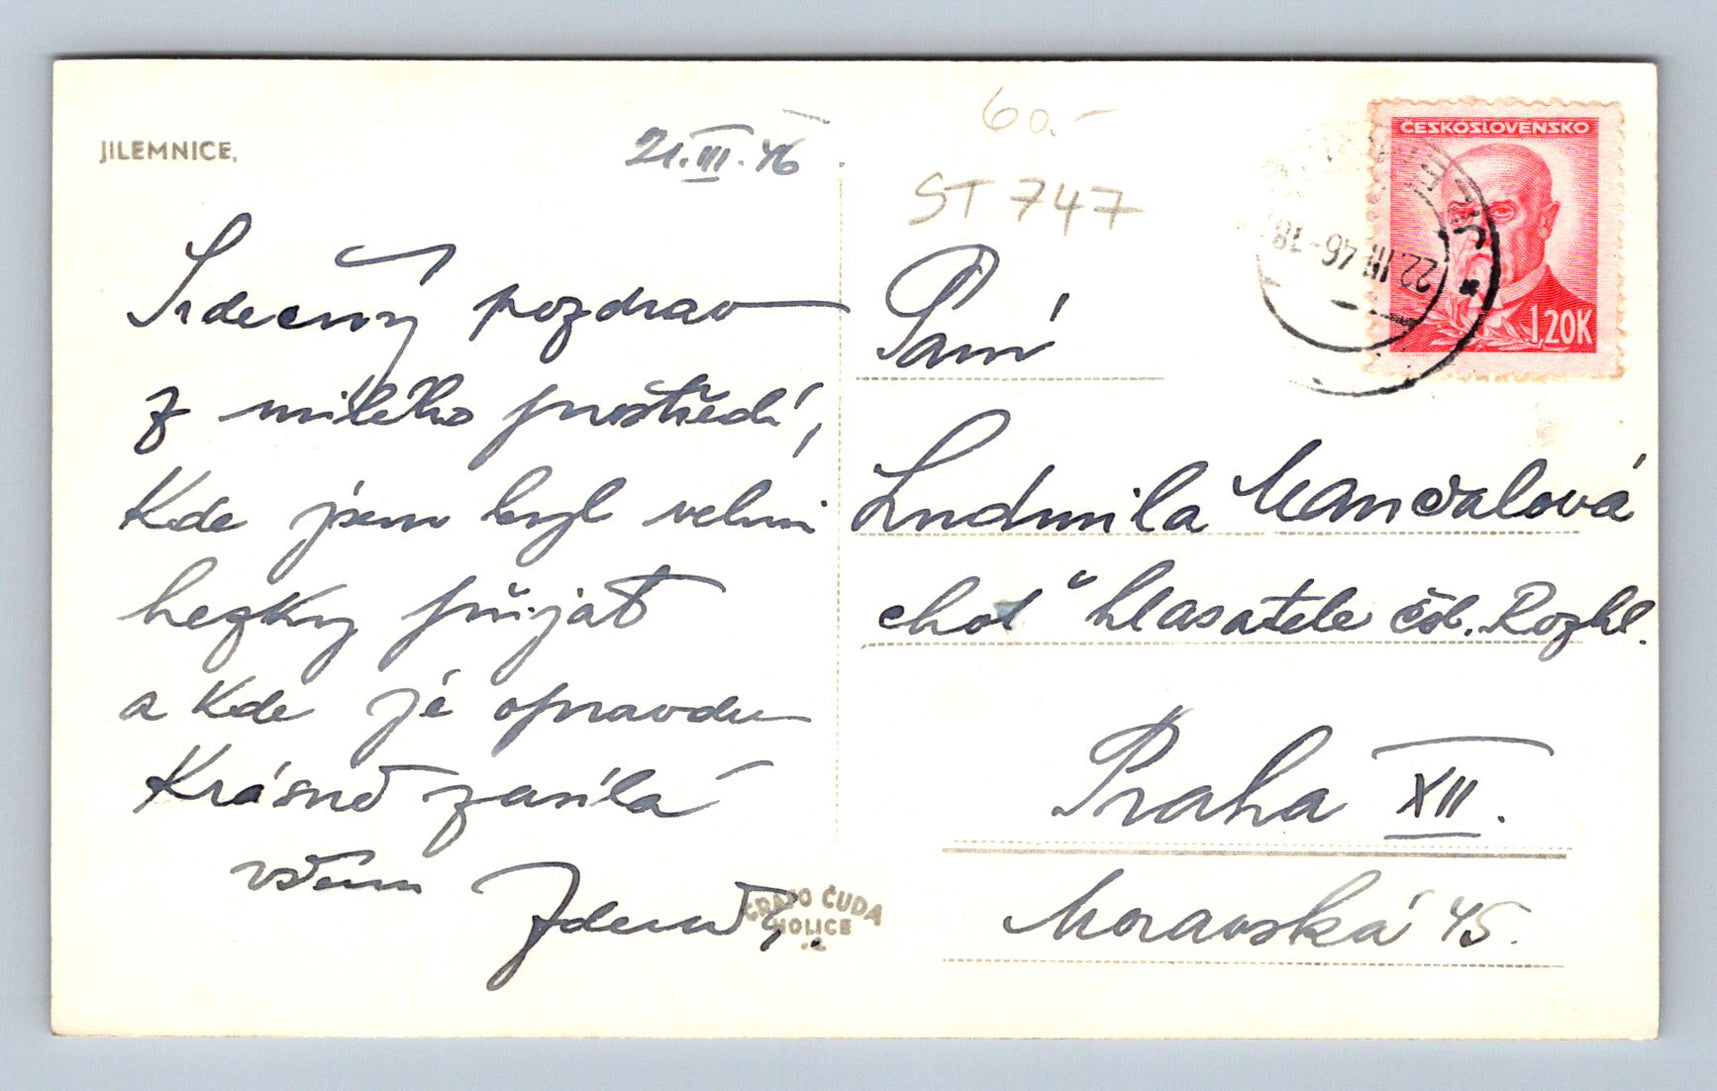 JILEMNICE,
21.III.46
60.-
ST 747
Srdečný pozdrav
z milého prostředí,
kde jsem byl velmi
hezky přijat
a kde je opravdu
krásně zasílá
všem Zdeněk.
Paní
Ludmila
choť hlasatele čsl. Rozhl.
Praha XII.
Moravská 45.
GRAFO ČUDA
HOLICE
ČESKOSLOVENSKO
1,20K
22.III.46-18